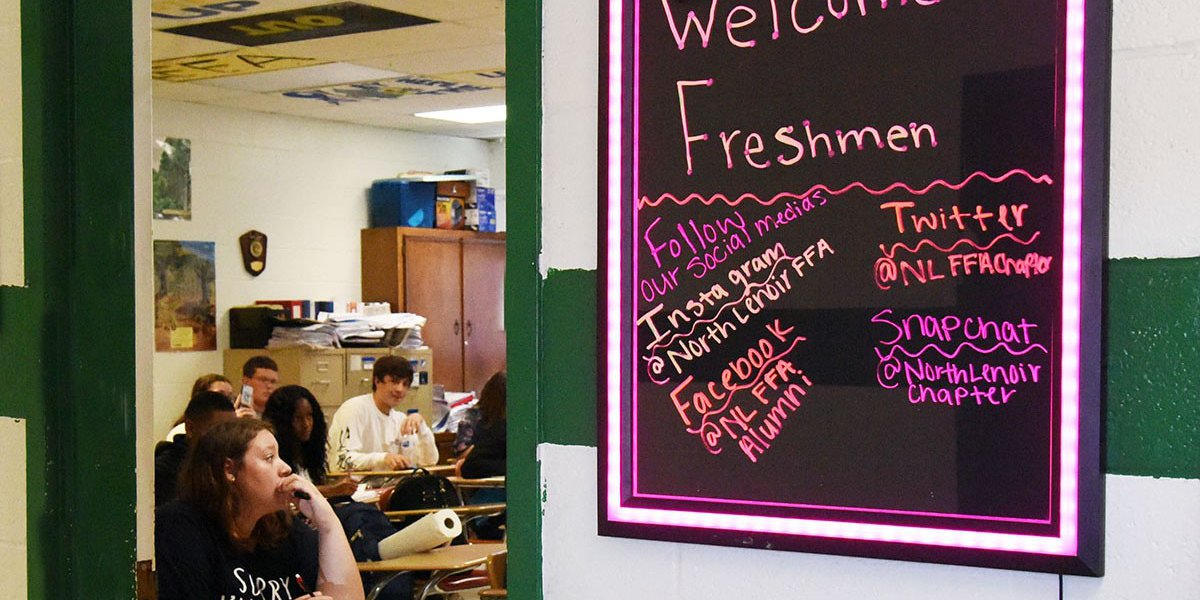 UP
FFA
Welcome
Freshmen
Follow
our social medias
Instagram
@NorthLenoir FFA
Facebook
@NL FFA
Alumni
Twitter
@NLFFAChapter
Snapchat
@NorthLenoir
Chapter